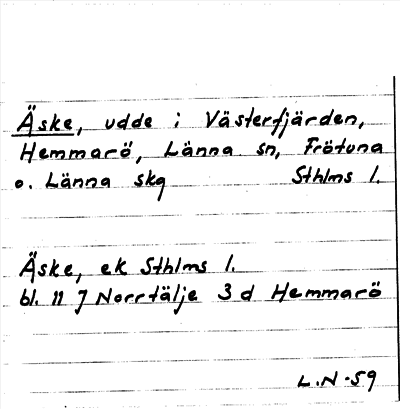 Äske, udde i Västerfjärden,
Hemmarö, Länna sn, Frötuna
o. Länna skg Sthlms l.
Äske, ek Sthlms l.
bl. 11 J Norrtälje 3 d Hemmarö
L.N-59